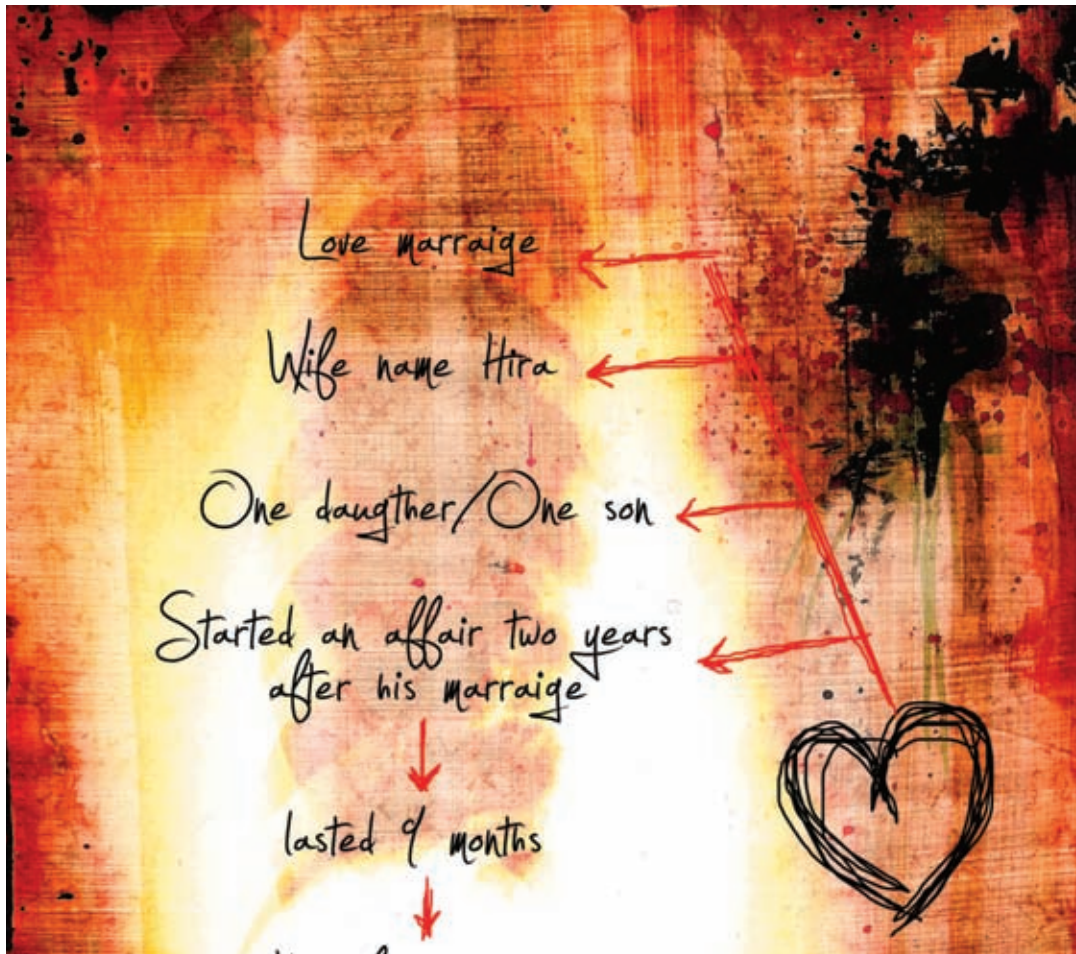 Love marraige
Wife name Hira
One daugther/One son
Started an affair two years
after his marraige
lasted 9 months